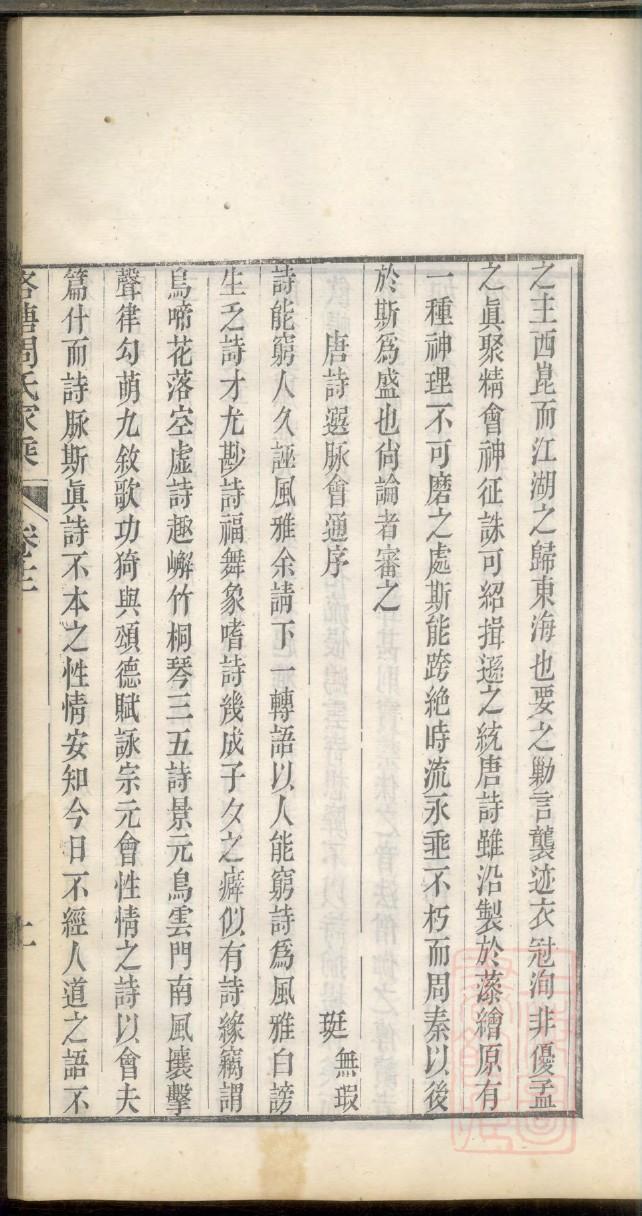 之主西崑而江湖之歸東海也要之勦言襲迹衣冠洵非優孟
之眞聚精會神征誅可紹揖遜之統唐詩雖沿製於藻繪原有
一種神理不可磨之處斯能跨絕時流永垂不朽而周秦以後
於斯爲盛也尙論者審之
唐詩選脉會通序
珽 無瑕
詩能窮人久誣風雅余請下一轉語以人能窮詩爲風雅白謗
生乏詩才尤尠詩福舞象嗜詩幾成子夕之癖似有詩緣竊謂
鳥啼花落空虛詩趣嶰竹桐琴三五詩景元鳥雲門南風壤擊
聲律勾萌九敘歌功猗與頌德賦詠宗元會性情之詩以會夫
篇什而詩脉斯眞詩不本之性情安知今日不經人道之語不
周氏家乘
卷十二